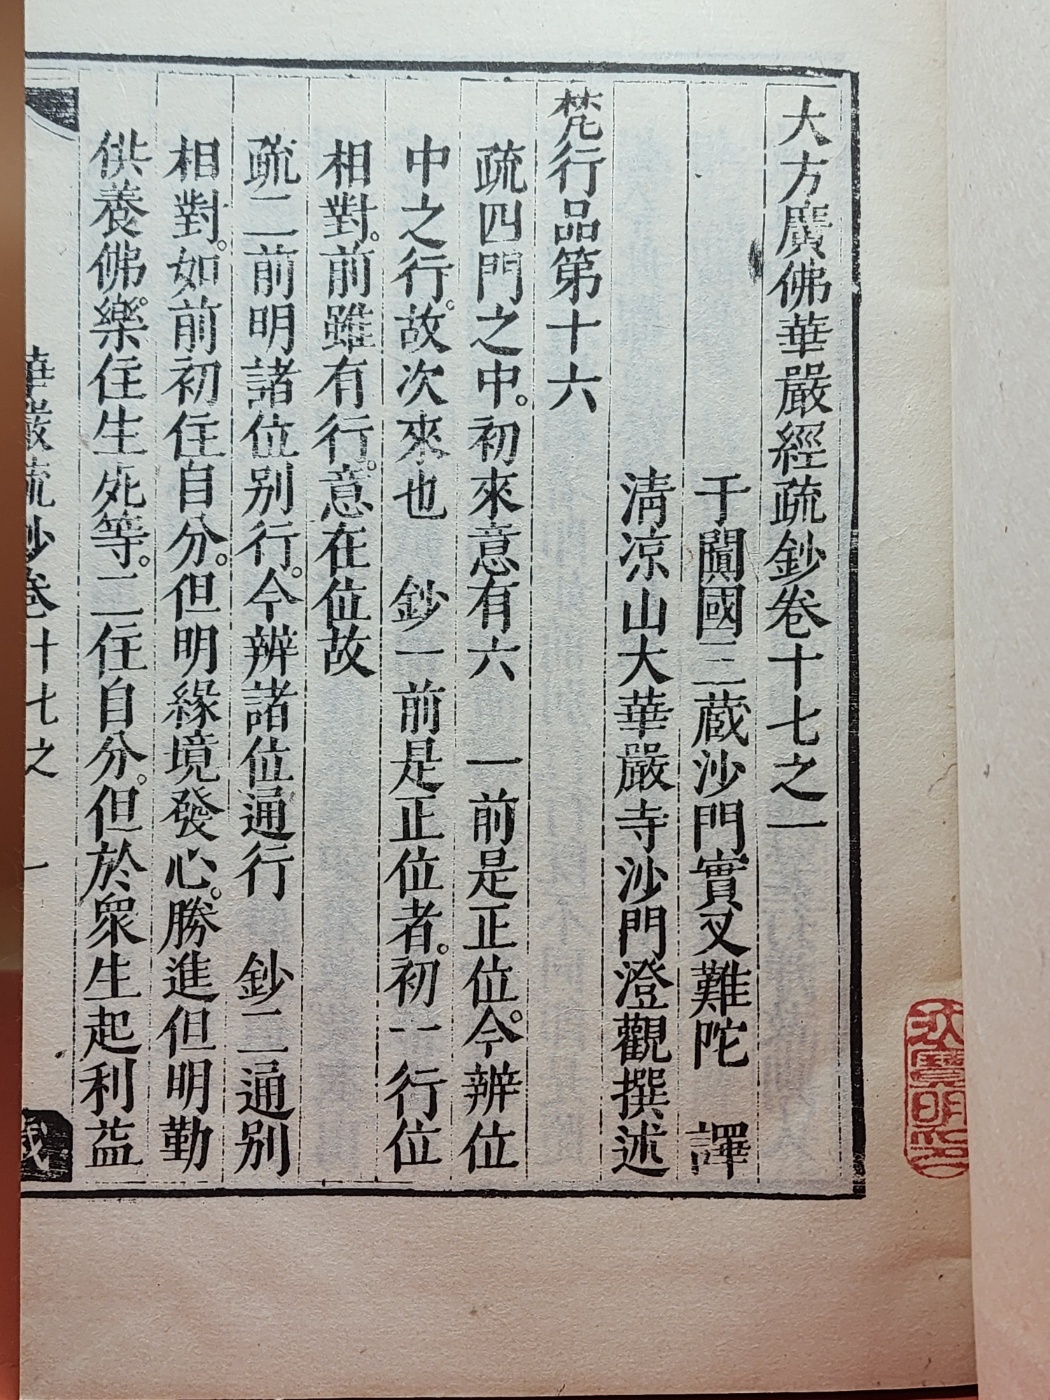 大方廣佛華嚴經疏鈔卷十七之一
于闐國三蔵沙門實叉難陀 譯
清凉山大華嚴寺沙門澄觀撰述
梵行品第十六
疏四門之中。初來意有六 一前是正位。今辨位
中之行。故次來也 鈔一前是正位者。初一行位
相對。前雖有行。意在位故
疏二前明諸位別行。今辨諸位通行 鈔二通別
相對。如前初住自分。但明緣境發心。勝進但明勤
供養佛。樂住生死等。二住自分。但於衆生起利益
華嚴疏鈔卷十七之 一